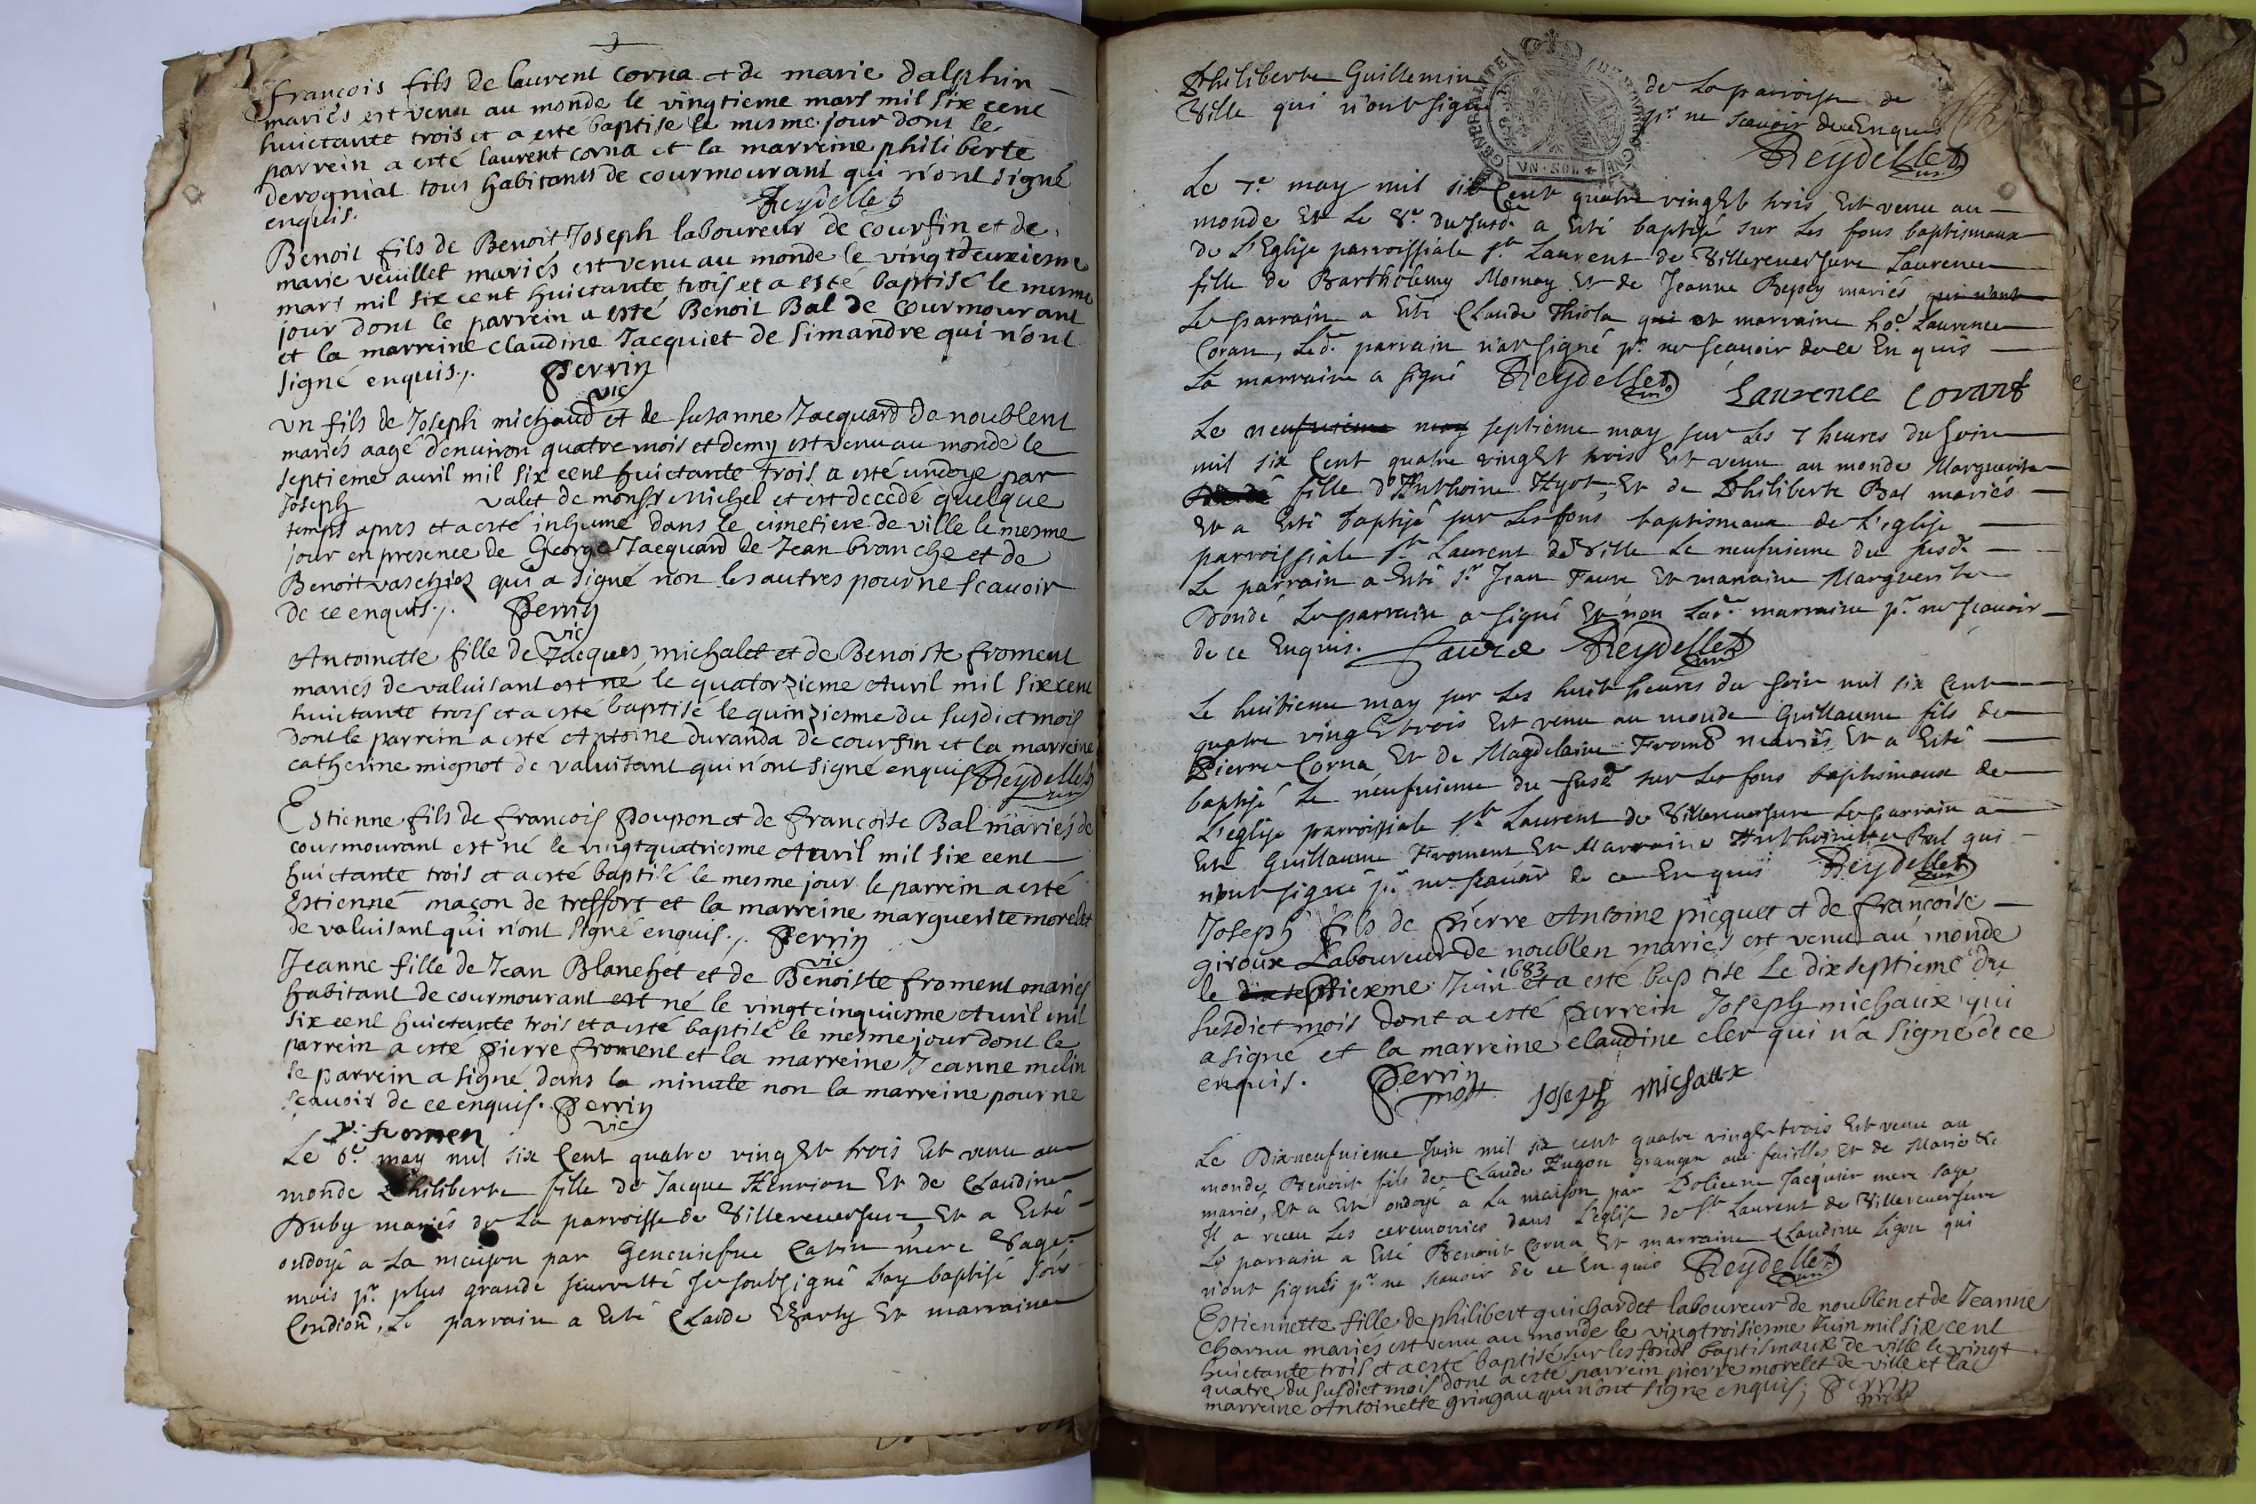 françois fils de laurent corna et de marie dalphin
mariés est venu au monde le vingtieme mars mil six cent
huictante trois et a esté baptise le mesme jour dont le
parrein a esté laurent corna et la marreine philiberte
derognial tous habitants de courmourant qui n'ont signé
enquis. Reydellet
Benoit fils de Benoit Joseph laboureur de courfin et de
marie veuillet mariés est venu au monde le vingtdeuxiesme
mars mil six cent huictante trois et a esté baptisé le mesme
jour dont le parrein a esté Benoit Bal de Courmourant
et la marreine claudine Jacquiet de simandre qui n'ont
signé enquis./. Perrin
vic
un fils de Joseph michaud et de susanne Jacquard de noublent
mariés aagé d'environ quatre mois et demy est venu au monde le
septieme avril mil six cent huictante trois a esté undoye par
Joseph valet de monsr Michel et est decedé quelque
temps apres et a esté inhumé dans le cimetiere de ville le mesme
jour en presence de George Jacquard de Jean branche et de
Benoit vaschiez qui a signé non les autres pour ne scavoir
de ce enquis./. Perrin
vic
Antoinette fille de Jacques michalet et de Benoiste froment
mariés de valuisant est né le quatorzieme Avril mil six cent
huictante trois et a esté baptisé le quinziesme du susdict mois
dont le parrein a esté Antoine duranda de courfin et la marreine
catherine mignot de valuisant qui n'ont signé enquis Reydellet
Estienne fils de francois Poupon et de francoise Bal mariés de
courmourant est né le vingtquatriesme Avril mil six cent
huictante trois et a esté baptisé le mesme jour le parrein a esté
Estienne maçon de treffort et la marreine marguerite morelet
de valuisant qui n'ont signé enquis./. Perrin
vic
Jeanne fille de Jean Blanchet et de Benoiste froment mariés
habitant de courmourant est né le vingtcinquiesme Avril mil
six cent huictante trois et a esté baptisé le mesme jour dont le
parrein a esté Pierre froment et la marreine Jeanne melin
le parrein a signé dans la minute non la marreine pour ne
scavoir de ce enquis. Perrin
vic
p. fromen
Le 6e may mil six Cent quatre vingEt trois Est venu au
monde Philiberte fille de Jacque Henrion Et de Claudine
Duby mariés de La parroisse de Villereversure, Et a Esté
ondoyé a La maison par Geneviefve Catin mere Sage
mais pr plus grande seurretté je soubsigné L'ay baptisé sous
Condiōn, Le parrain a Esté Claude Charly Et marraine
Philiberte Guillemin de La parroisse de
Ville qui n'ont signé pr ne scavoir de ce Enquis
GENERALITE DE BOURGOGNE
VN·SOL
Reydellet
Le 7e may mil six Cent quatre vingEt trois Est venu au
monde Et Le 8e du susd. a Esté baptisé sur Les fons baptismaux
de L'Eglise parroissiale St Laurent de Villereversure Laurence
fille de Barthelemy Mornay Et de Jeanne Bepoy mariés qui n'ont
Le parrain a Esté Claude Thiola qui et marraine ho. Laurence
Coran, Led. parrain n'at signé pr ne scavoir de ce Enquis
La marraine a signé Reydellet Laurence Corant
Le neufvieme may septieme may sur Les 7 heures du soir
mil six Cent quatre vingEt trois Est venu au monde Marguerite
fille d'Anthoine Hyot, Et de Philiberte Bal mariés
Et a Esté baptisé sur Les fons baptismaux de L'eglise
parroissiale St Laurent de Ville Le neufvieme du susd.
Le parrain a Esté sr Jean Faure Et marraine Marguerite
Dondé Le parrain a signé Et non Lad. marraine pr ne scavoir
de ce Enquis. Faure Reydellet
Le huitieme may sur Les huit heures du soir mil six Cent
quatre vingEtrois Est venu au monde Guillaume fils de
Pierre Corna Et de Magdelaine From͞t mariés Et a Esté
baptisé Le neufvieme du susd. sur Les fons baptismaux de
L'eglise parroissiale St Laurent de Villereversure Le parrain a
Esté Guillaume Froment Et Marraine Anthoinette Bal qui
n'ont signé pr ne scavoir de ce Enquis Reydellet
Joseph fils de Pierre Antoine picquet et de françoise
giroux Laboureur de noublen mariés est venu au monde
le dix septiexme Juin 1683 et a esté baptise Le dixseptieme du
susdict mois dont a esté parrein Joseph michaux qui
a signé et la marreine claudine cler qui n'a signé de ce
enquis. Perrin
Joseph Michaux
Le Dixneufvieme Juin mil six cent quatre vingEtrois Est venu au
monde Benoit fils de Claude Hugon granger aux faisilles Et de Marie
mariés, Et a Esté ondoyé a La maison par Jacquier mere sage
Il a receu Les ceremonies dans L'eglise de St Laurent de Villereversure
Le parrain a Esté Benoit Corna Et marraine Claudine Ligou qui
n'ont signés pr ne scavoir de ce Enquis Reydellet
Estiennette fille de philibert guichardet laboureur de noublen et de Jeanne
charnu mariés est venu au monde le vingtroisiesme Juin mil six cent
huictante trois et a esté baptisé sur les fonds baptismaux de ville le vingt
quatre du susdict mois dont a esté parrein pierre morelet de ville et la
marreine Antoinette gringau qui n'ont signe enquis; Perrin